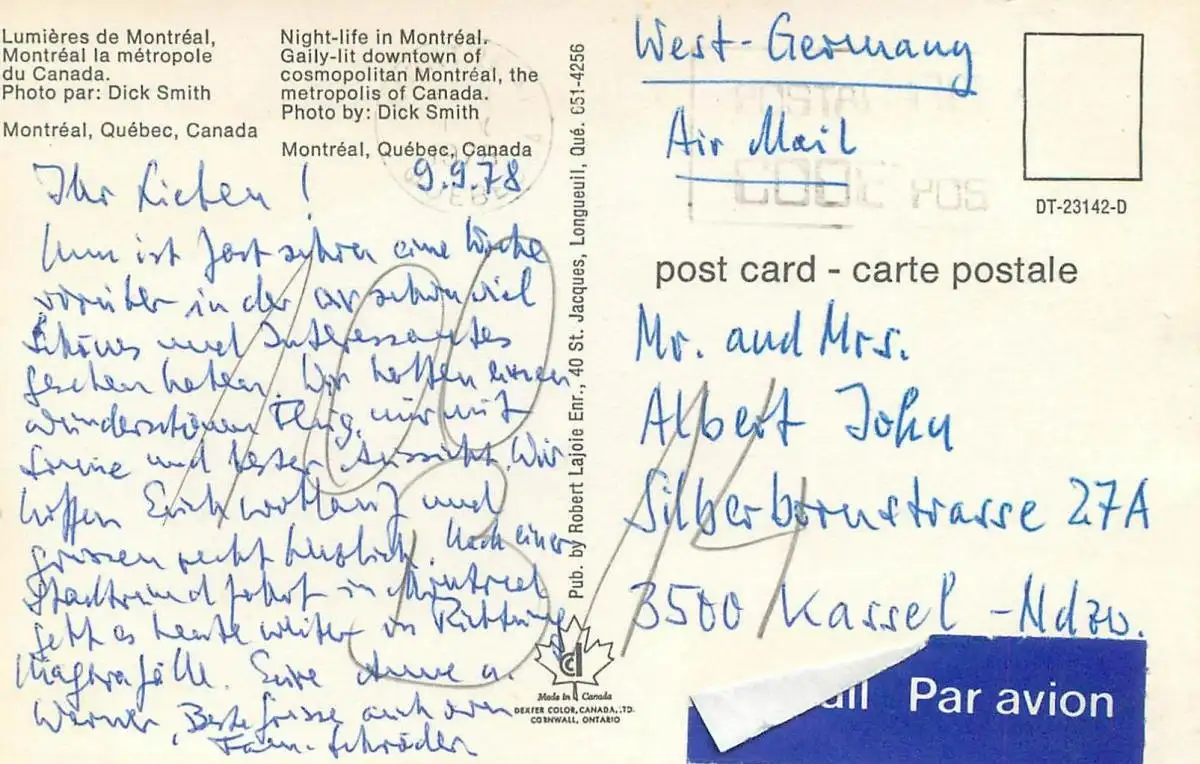 Lumières de Montréal,
Montréal la métropole
du Canada.
Photo par: Dick Smith
Montréal, Québec, Canada
Night-life in Montréal.
Gaily-lit downtown of
cosmopolitan Montréal, the
metropolis of Canada.
Photo by: Dick Smith
Montréal, Québec, Canada
9.9.78
Ihr Lieben!
Nun ist fast schon eine Woche
vorüber in der wir schon viel
Schönes und Interessantes
gesehen haben. Wir hatten einen
wunderschönen Flug, nur mit
Sonne und bester Aussicht. Wir
hoffen Euch wohlauf und
grüssen recht herzlich. Nach einer
Stadtrundfahrt in Montreal
geht es heute weiter in Richtung
Niagrafälle. Eure Anne u.
Werner, Beste Grüsse auch von
Fam. Schröder
100
3/14
Pub. by Robert Lajoie Enr., 40 St. Jacques, Longueuil, Qué. 651-4256
Made in Canada
DEXTER COLOR, CANADA, LTD.
CORNWALL, ONTARIO
West-Germany
Air Mail
POSTAL
CODE POS
DT-23142-D
post card - carte postale
Mr. and Mrs.
Albert John
Silberbornstrasse 27A
3500 Kassel -Ndzw.
Par avion